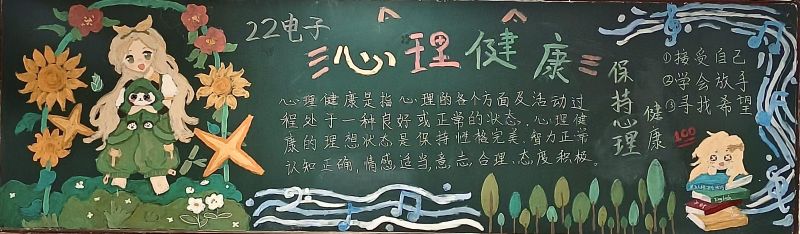 22电子
心理健康
心理健康是指心理的各个方面及活动过
程处于一种良好或正常的状态。心理健
康的理想状态是保持性格完美、智力正常
认知正确,情感适当,意志合理、态度积极。
保持心理
健康
①接受自己
②学会放手
③寻找希望
100
English